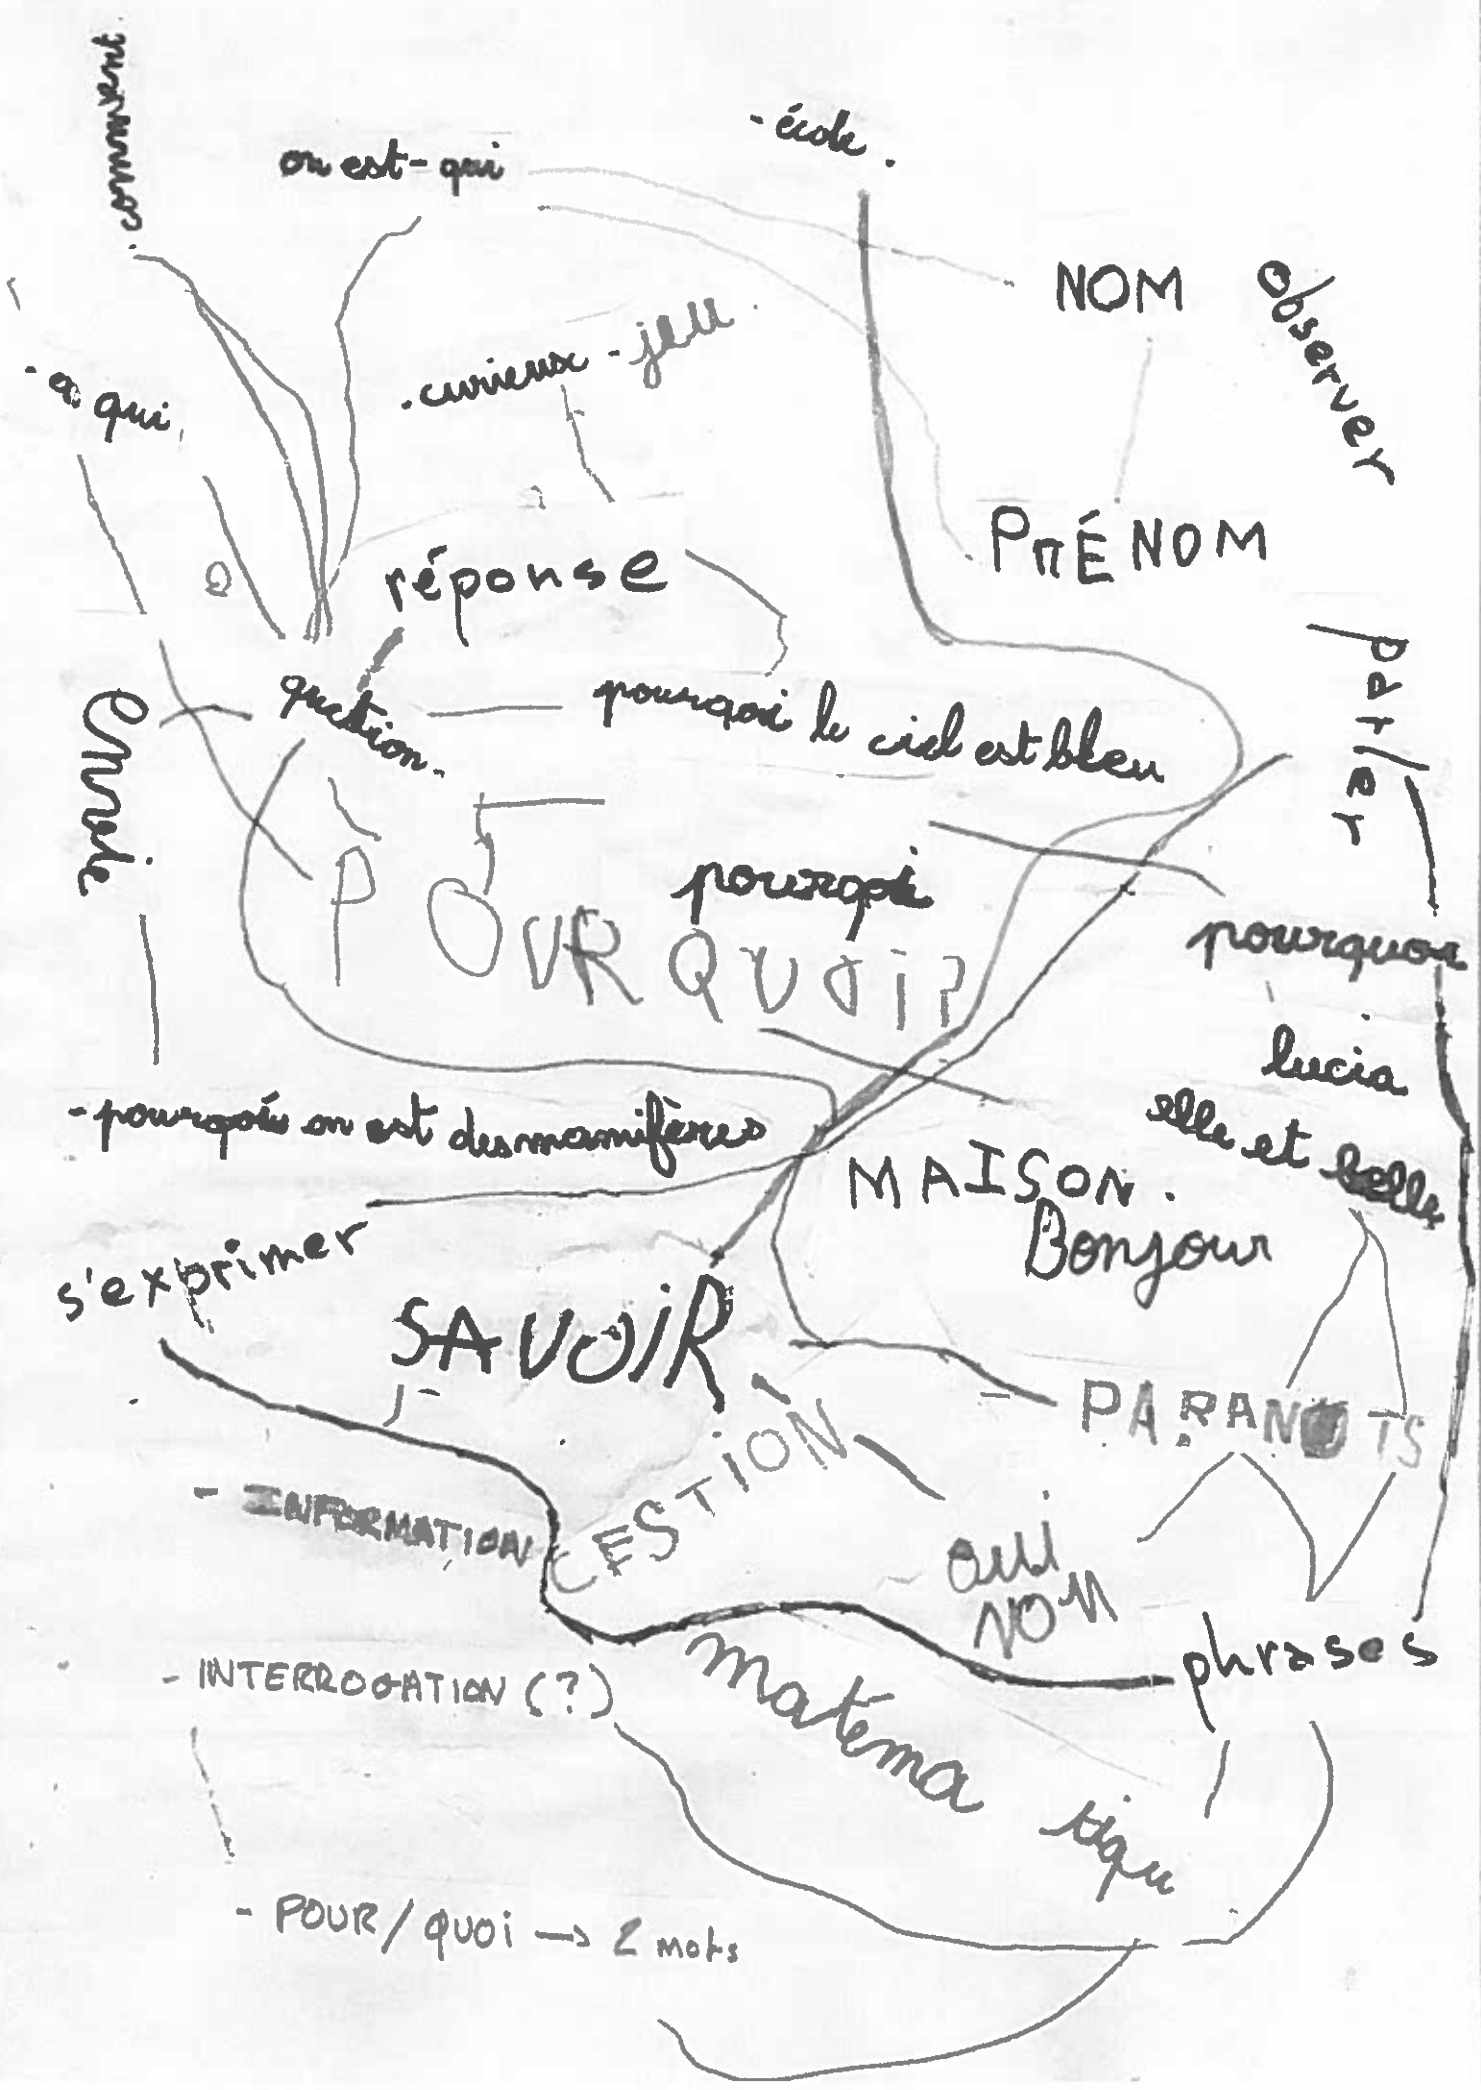 . comment
on est-qui
- école.
NOM
observer
. curieux - jeu.
- a qui
PRÉNOM
réponse
parler
question.
pourqoi le ciel est bleu
envie
pourqoi
POURQUOI?
pourquoi
lucia
elle et belle
- pourqoi on est des mamifères
MAISON.
Bonjour
s'exprimer
SAVOIR
PARANTS
CESTION
- INFORMATION
oui
NON
phrases
- INTERROGATION (?)
matéma
tique
- POUR/QUOI → 2 mots